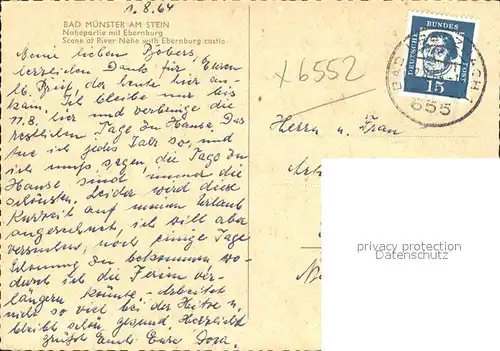 1.8.64
BAD MÜNSTER AM STEIN
Nahepartie mit Ebernburg
Scene at River Nahe with Ebernburg castle
Meine lieben Bobers,
herzlichen Dank für Euren
lb. Brief, der heute hier an-
kam. Ich bleibe nur bis
11.8. hier und verbringe die
restlichen Tage zu Hause. Das
tue ich jedes Jahr so, und
ich muß sagen, die Tage zu
Hause sind immer die
schönsten. Leider wird diese
Kurzeit auf meinen Urlaub
angerechnet, ich will aber
versuchen, noch einige Tage
Schonung zu bekommen wo-
durch ich die Ferien ver-
längern könnte. Arbeitet
nicht so viel bei der Hitze u.
bleibt schön gesund. Herzlichst
grüßt Euch Eure Dora.
x6552
DEUTSCHE
BUNDES
POST
15
BAD
CH
655
Herrn u. Frau
privacy protection